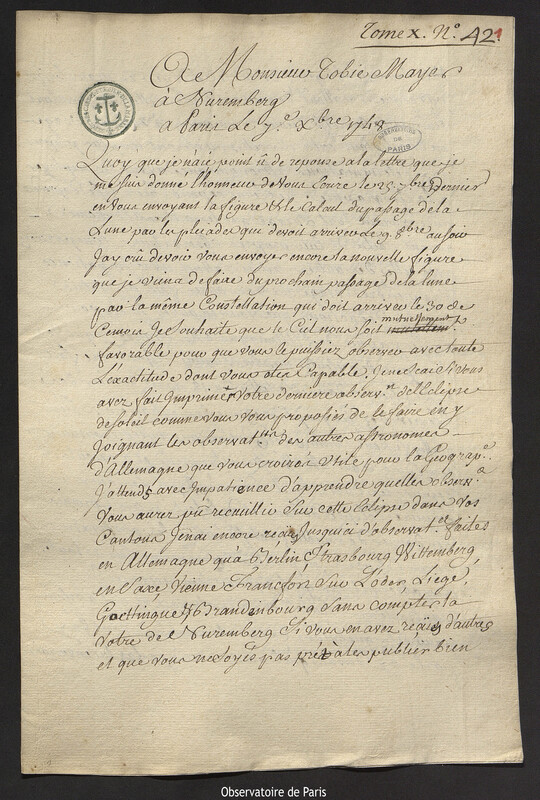 Tome X. N.º 42
A Monsieur Tobie Mayer
à Nuremberg
a Paris Le 7.e Xbre 1748
OBSERVATOIRE DE PARIS
Quoy que je naie point û de reponse a la lettre que je
me suis donné lhonneur de vous écrire le 25 7bre Dernier
en vous envoyant la figure & le calcul du passage de la
Lune par les pleiades qui devoit arriver le 9 8bre au soir
Jay crû devoir vous envoyer encore la nouvelle figure
que je viens de faire du prochain passage de la lune
par la même Constellation qui doit arriver le 30 de
Cemois Je souhaite que le Ciel nous soit mutuellement
favorable pour que vous le puissiez observer avec toute
L'exactitude dont vous etes Capable, Je ne scai si vous
avez fait Imprimer votre derniere observ.on de l'Eclipse
de soleil comme vous vous proposiés de le faire en y
Joignant les observat.ons des autres astronomes
d'Allemagne que vous croirois utile pour la Geograp.e
J'attends avec Impatience d'apprendre quelles observ.s
Vous aurez pû recueillir sur cette Eclipse dans vos
Cantons Jenai encore reçu Jusqu'ici d'observat.ons faites
en Allemagne qu'a Berlin Strasbourg Wittemberg
en Saxe Vienne Francfort sur Loder, Liege,
Goettingue & Brandenbourg sans compter la
Votre de Nuremberg Si vous en avez reçües d'autres
et que vous ne soyés pas prêt à les publier bien
Observatoire de Paris